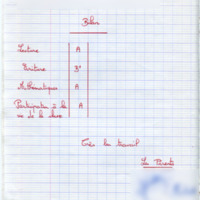 Bilan
Lecture A
Ecriture B+
Mathématiques A
Participation à la
vie de la classe A
Très bon travail
Les Parents